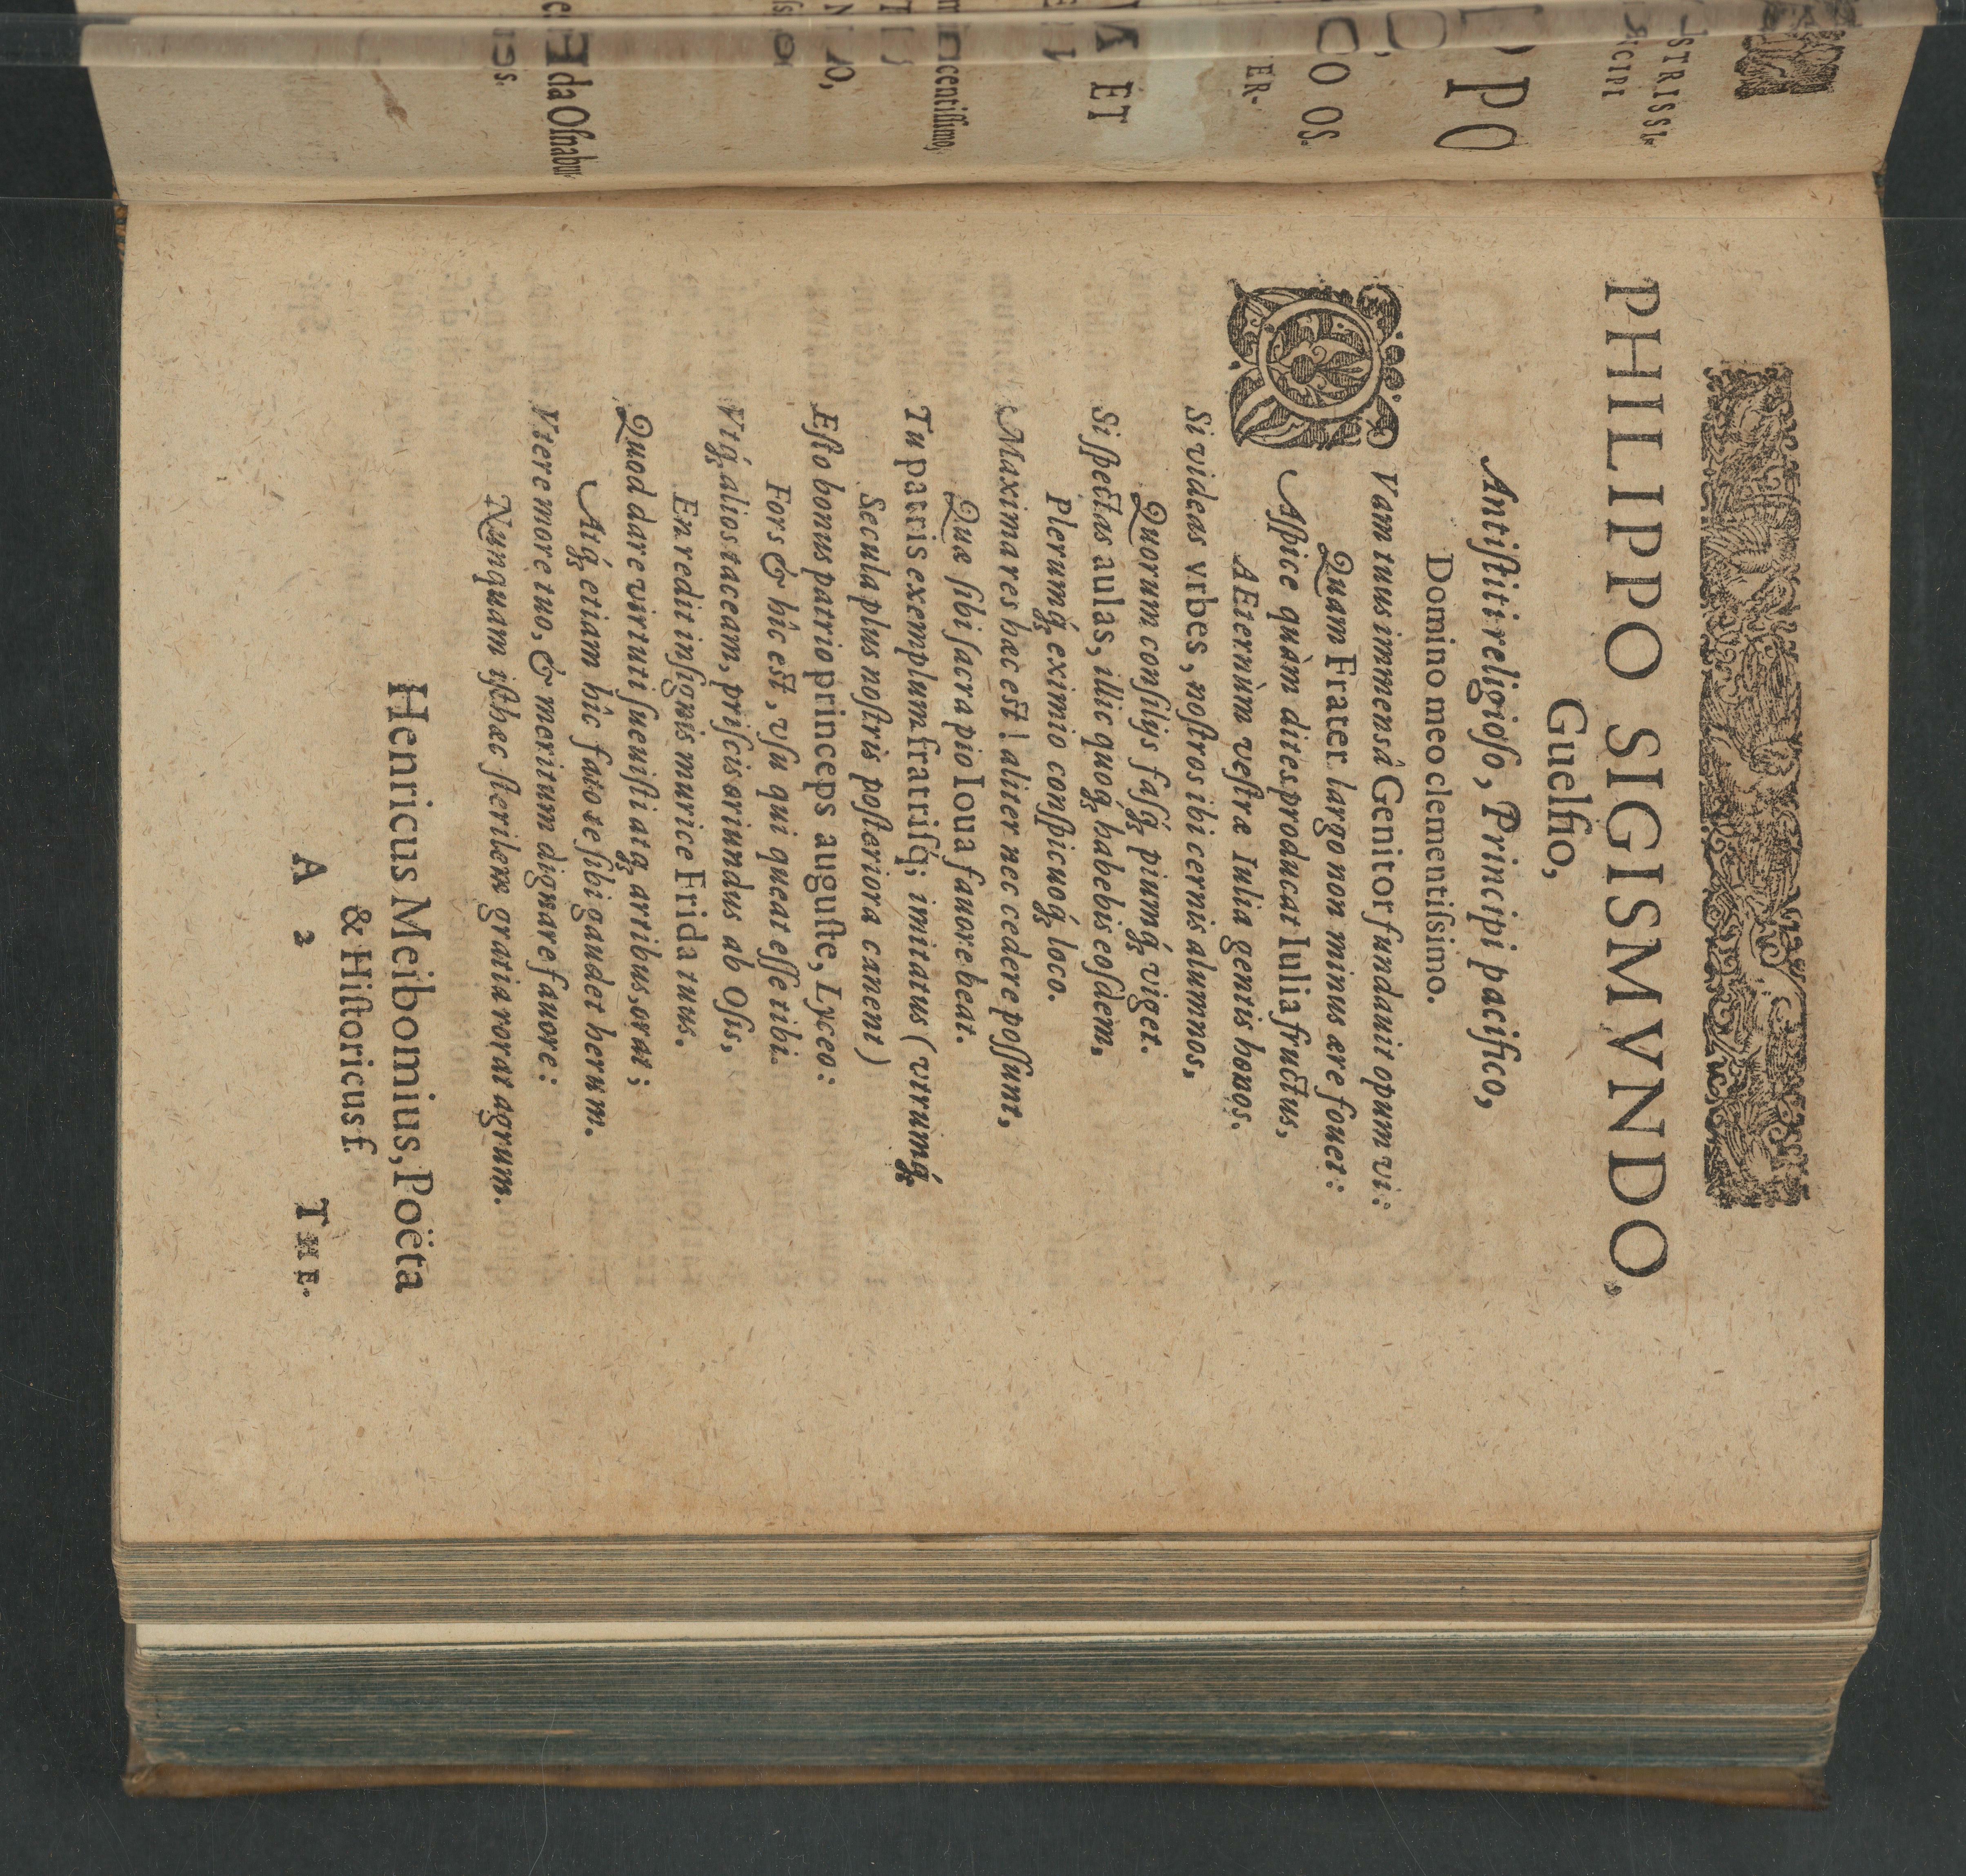 PHILIPPO SIGISMVNDO,
Guelfio,
Antiſtiti religioſo, Principi pacifico,
Domino meo clementiſsimo.
QVam tuus immensâ Genitor fundauit opum vi:
Quam Frater largo non minus ære fouet:
Aſpice quàm dites producat Iulia fructus,
AEternùm veſtræ Iulia gentis honos.
Si videas vrbes, noſtros ibi cernis alumnos,
Quorum conſilijs faſq́; piumq́; viget.
Si ſpectas aulas, illic quoq; habebis eoſdem,
Plerumq́; eximio conſpicuoq́; loco.
Maxima res hæc eſt! aliter nec cedere poſſunt,
Quæ ſibi ſacra pio Ioua fauore beat.
Tu patris exemplum fratriſq́; imitatus (vtrumq́;
Secula plus noſtris poſteriora canent)
Eſto bonus patrio princeps auguſte, Lyceo:
Fors & hîc eſt, vſu qui queat eſſe tibi.
Vtq́; alios taceam, priſcis oriundus ab Oſis,
En redit inſignis murice Frida tuus.
Quod dare virtuti ſueuiſti atq; artibus, orat;
Atq́; etiam hîc fato te ſibi gaudet herum.
Vtere more tuo, & meritum dignare fauore:
Nunquam iſthæc ſterilem gratia rorat agrum.
Henricus Meibomius, Poëta
& Hiſtoricus f.
A 2
THE.
STRISSI-
CIPI
PO
OOS.
ER-
ET
centiſſimo,
O,
da Oſnabu-
s.